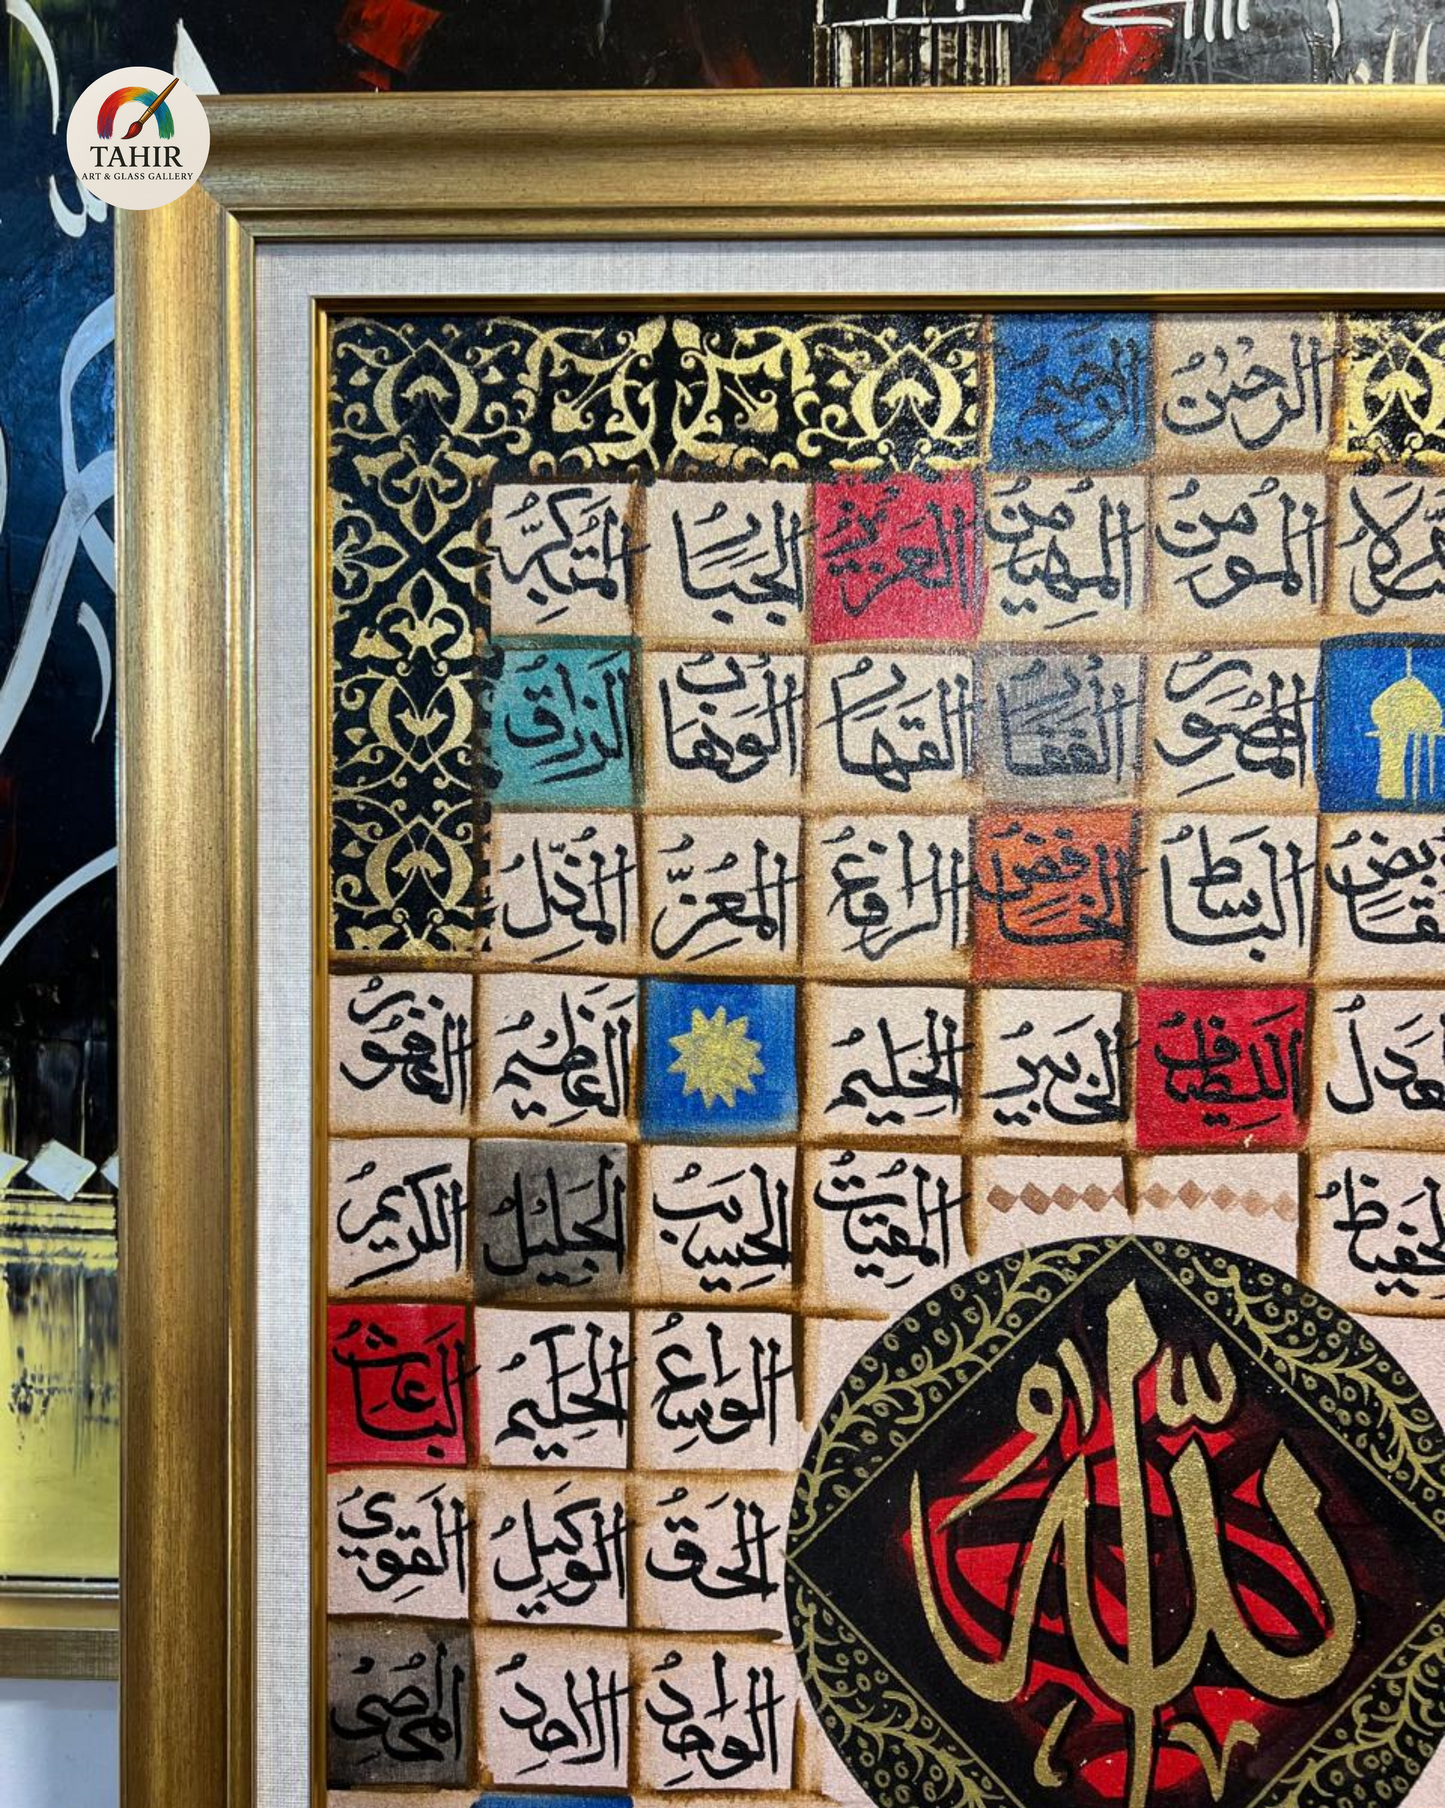 TAHIR
ART & GLASS GALLERY
الرحمن الرحيم
المومن المهيمن العزيز الجبار المتكبر
المصور الغفار القهار الوهاب الرزاق
الباسط الخافض الرافع المعز المذل
اللطيف الخبير الحليم العظيم الغفور
المقيت الحسيب الجليل الكريم
الواسع الحكيم الباعث
الحق الوكيل القوي
الواحد الاحد المحصي
الله